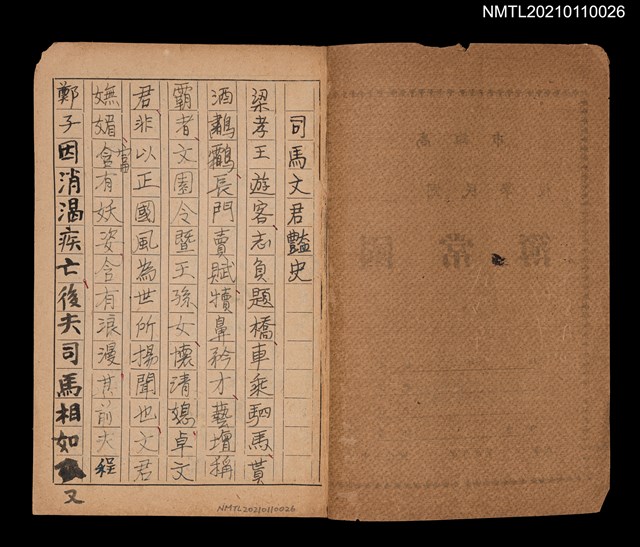 NMTL20210110026
司馬文君豔史
梁孝王遊客志負題橋、車乘駟馬、貰
酒鷫鸘、長門賣賦、犢鼻矜才、藝增稱
霸者、文園令暨王孫女、懷清媰卓文
君、非以正國風為世所揚聞也、文君
嫵媚富含有妖姿、含有浪漫、其前夫程
鄭子因消渴疾亡後夫司馬相如又
NMTL20210110026